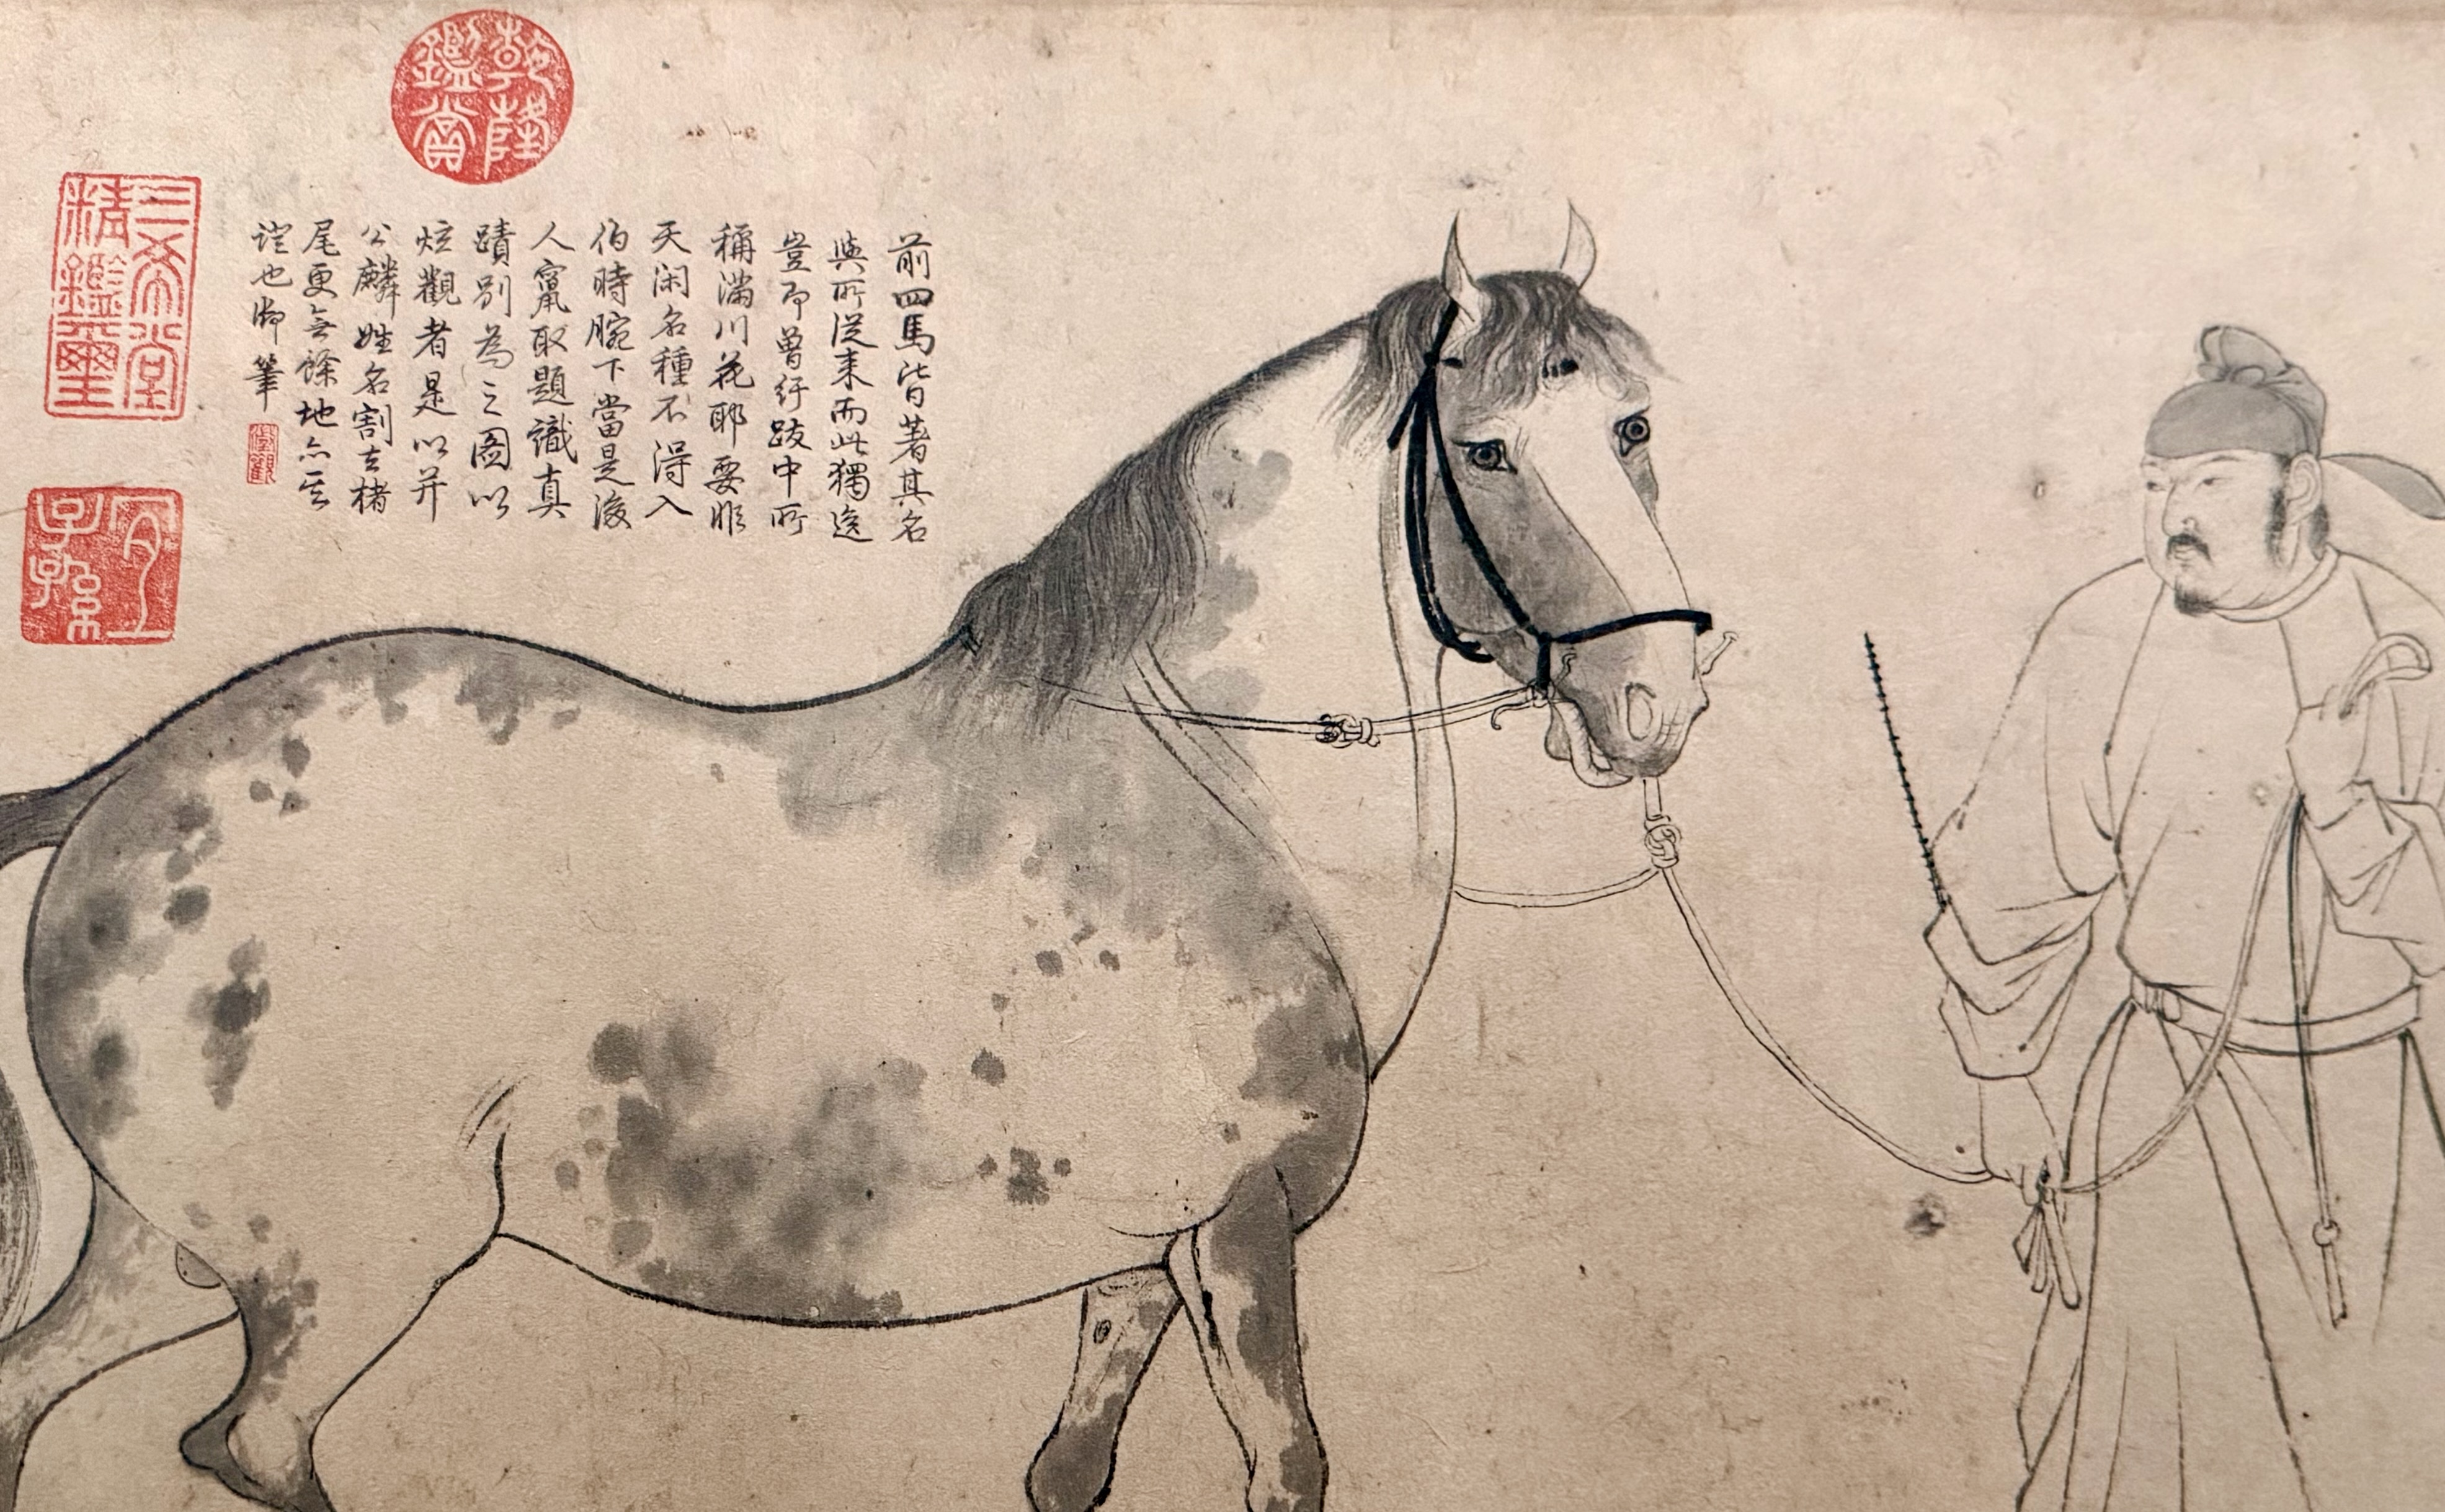 前四馬皆著其名
與所從來而此獨逸
豈即曾紆跋中所
稱滿川花耶要非
天閑名種不得入
伯時腕下當是後
人竄取題識真
蹟別為之圖以
炫觀者是以并
公麟姓名割去楮
尾更無餘地亦不
誼也御筆
乾隆鑑賞
三希堂精鑑璽
宜子孫